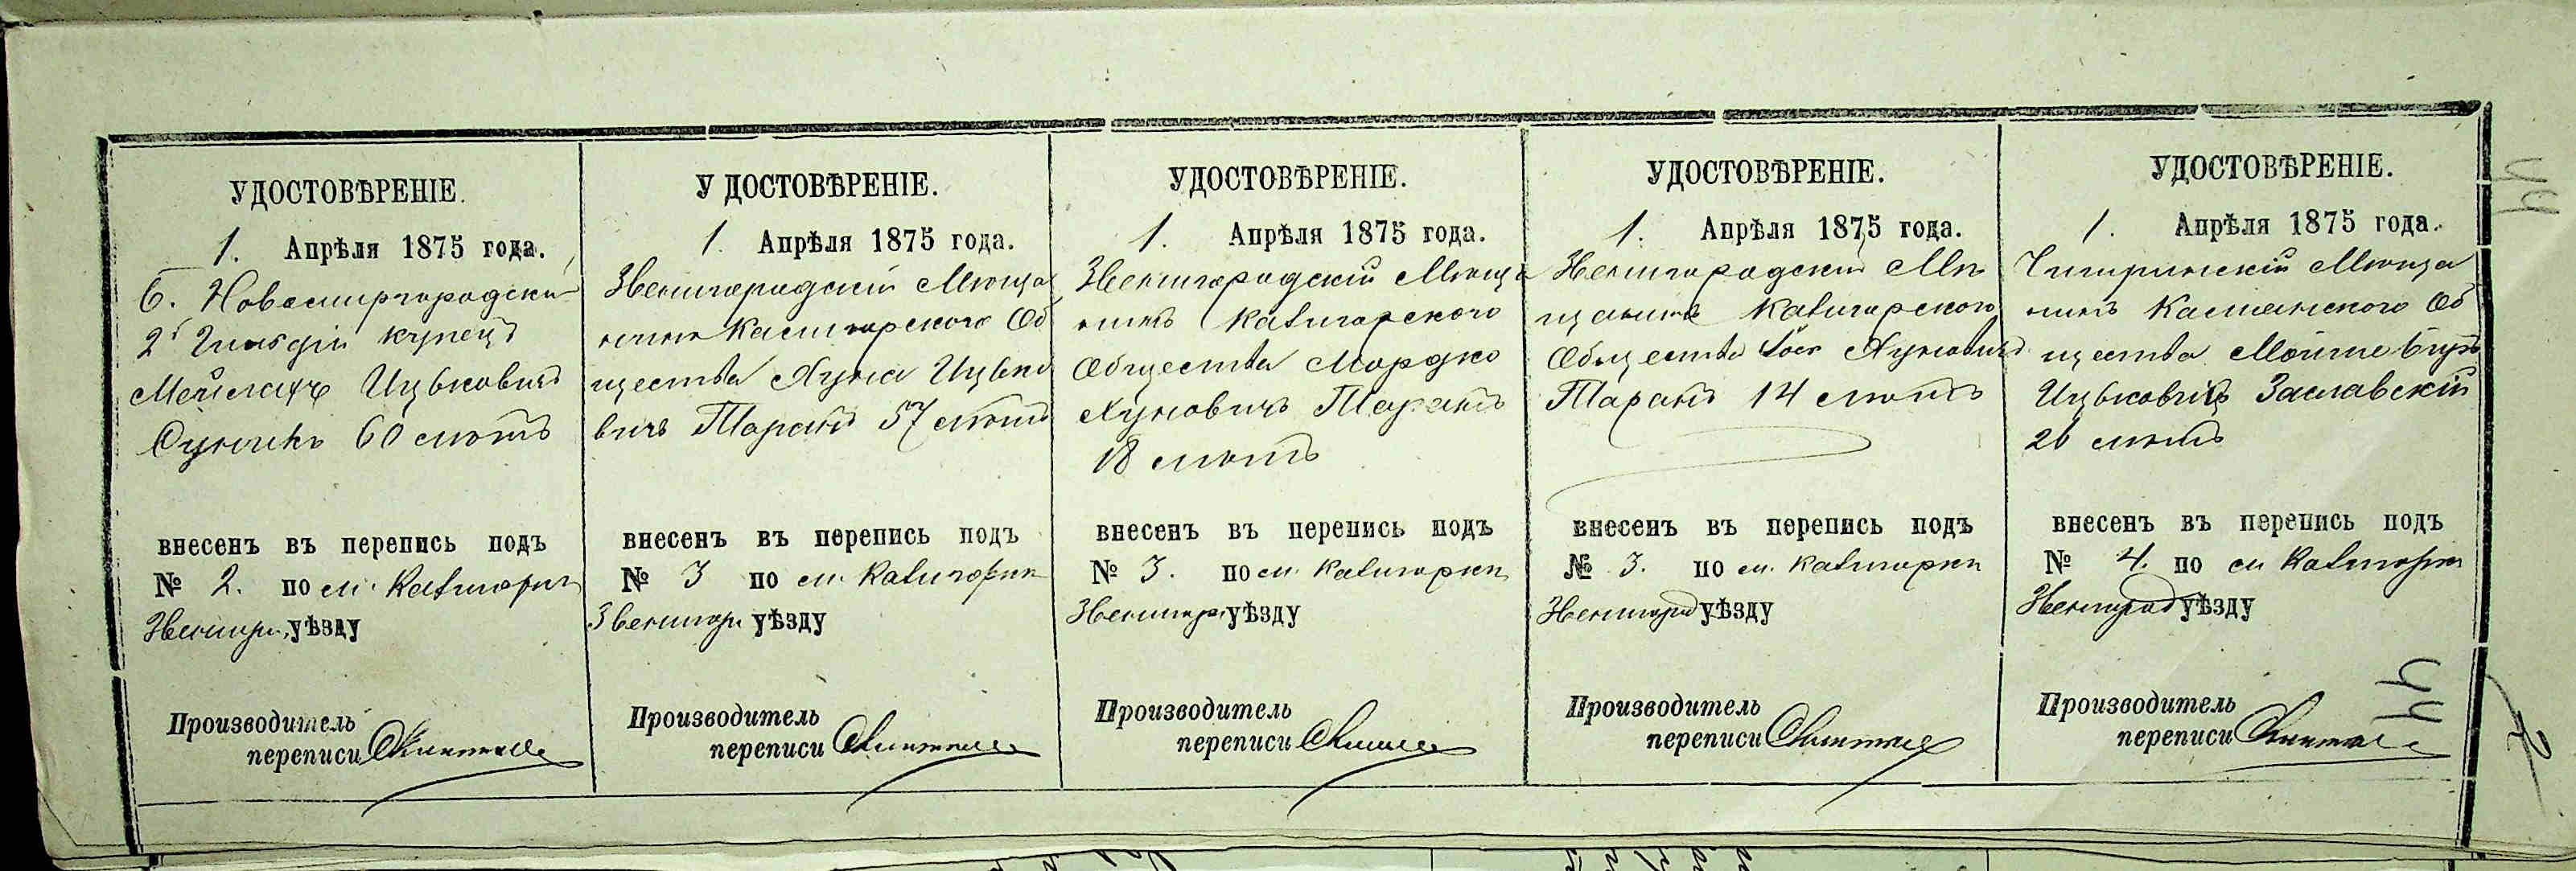 УДОСТОВѢРЕНІЕ.
1. Апрѣля 1875 года.
б. Новомиргородскі
2й Гильдіи купецъ
Мейлахъ Ицьковичъ
60 лѣтъ
внесенъ въ перепись подъ
№ 2. по м. Катигорки
Звенигор. уѣзду
Производитель
переписи
У ДОСТОВѢРЕНІЕ.
1. Апрѣля 1875 года.
Звенигородскій Мѣща
нинъ Катигорского Об
щества Хуна Ицько
вичъ Таранъ 57 лѣтъ
внесенъ въ перепись подъ
№ 3 по м. Катигорки
Звенигор уѣзду
Производитель
переписи
УДОСТОВѢРЕНІЕ.
1. Апрѣля 1875 года.
Звенигородскій Мѣща
нинъ Катигорского
Общества Мордко
Хуновичъ Таранъ
18 лѣтъ
внесенъ въ перепись подъ
№ 3. по м. Катигорки
Звенигор уѣзду
Производитель
переписи
УДОСТОВѢРЕНІЕ.
1. Апрѣля 1875 года.
Звенигородскій Мѣ
щанинъ Катигорского
Общества Хуновичъ
Таранъ 14 лѣтъ
внесенъ въ перепись подъ
№ 3. по м. Катигорки
Звенигород уѣзду
Производитель
переписи
УДОСТОВѢРЕНІЕ.
1. Апрѣля 1875 года.
Чигиринскій Мѣща
нинъ Об
щества Мойше
Ицьковичъ Заславскій
20 лѣтъ
внесенъ въ перепись подъ
№ 4. по м Катигорки
Звенигород уѣзду
Производитель
переписи
44
44